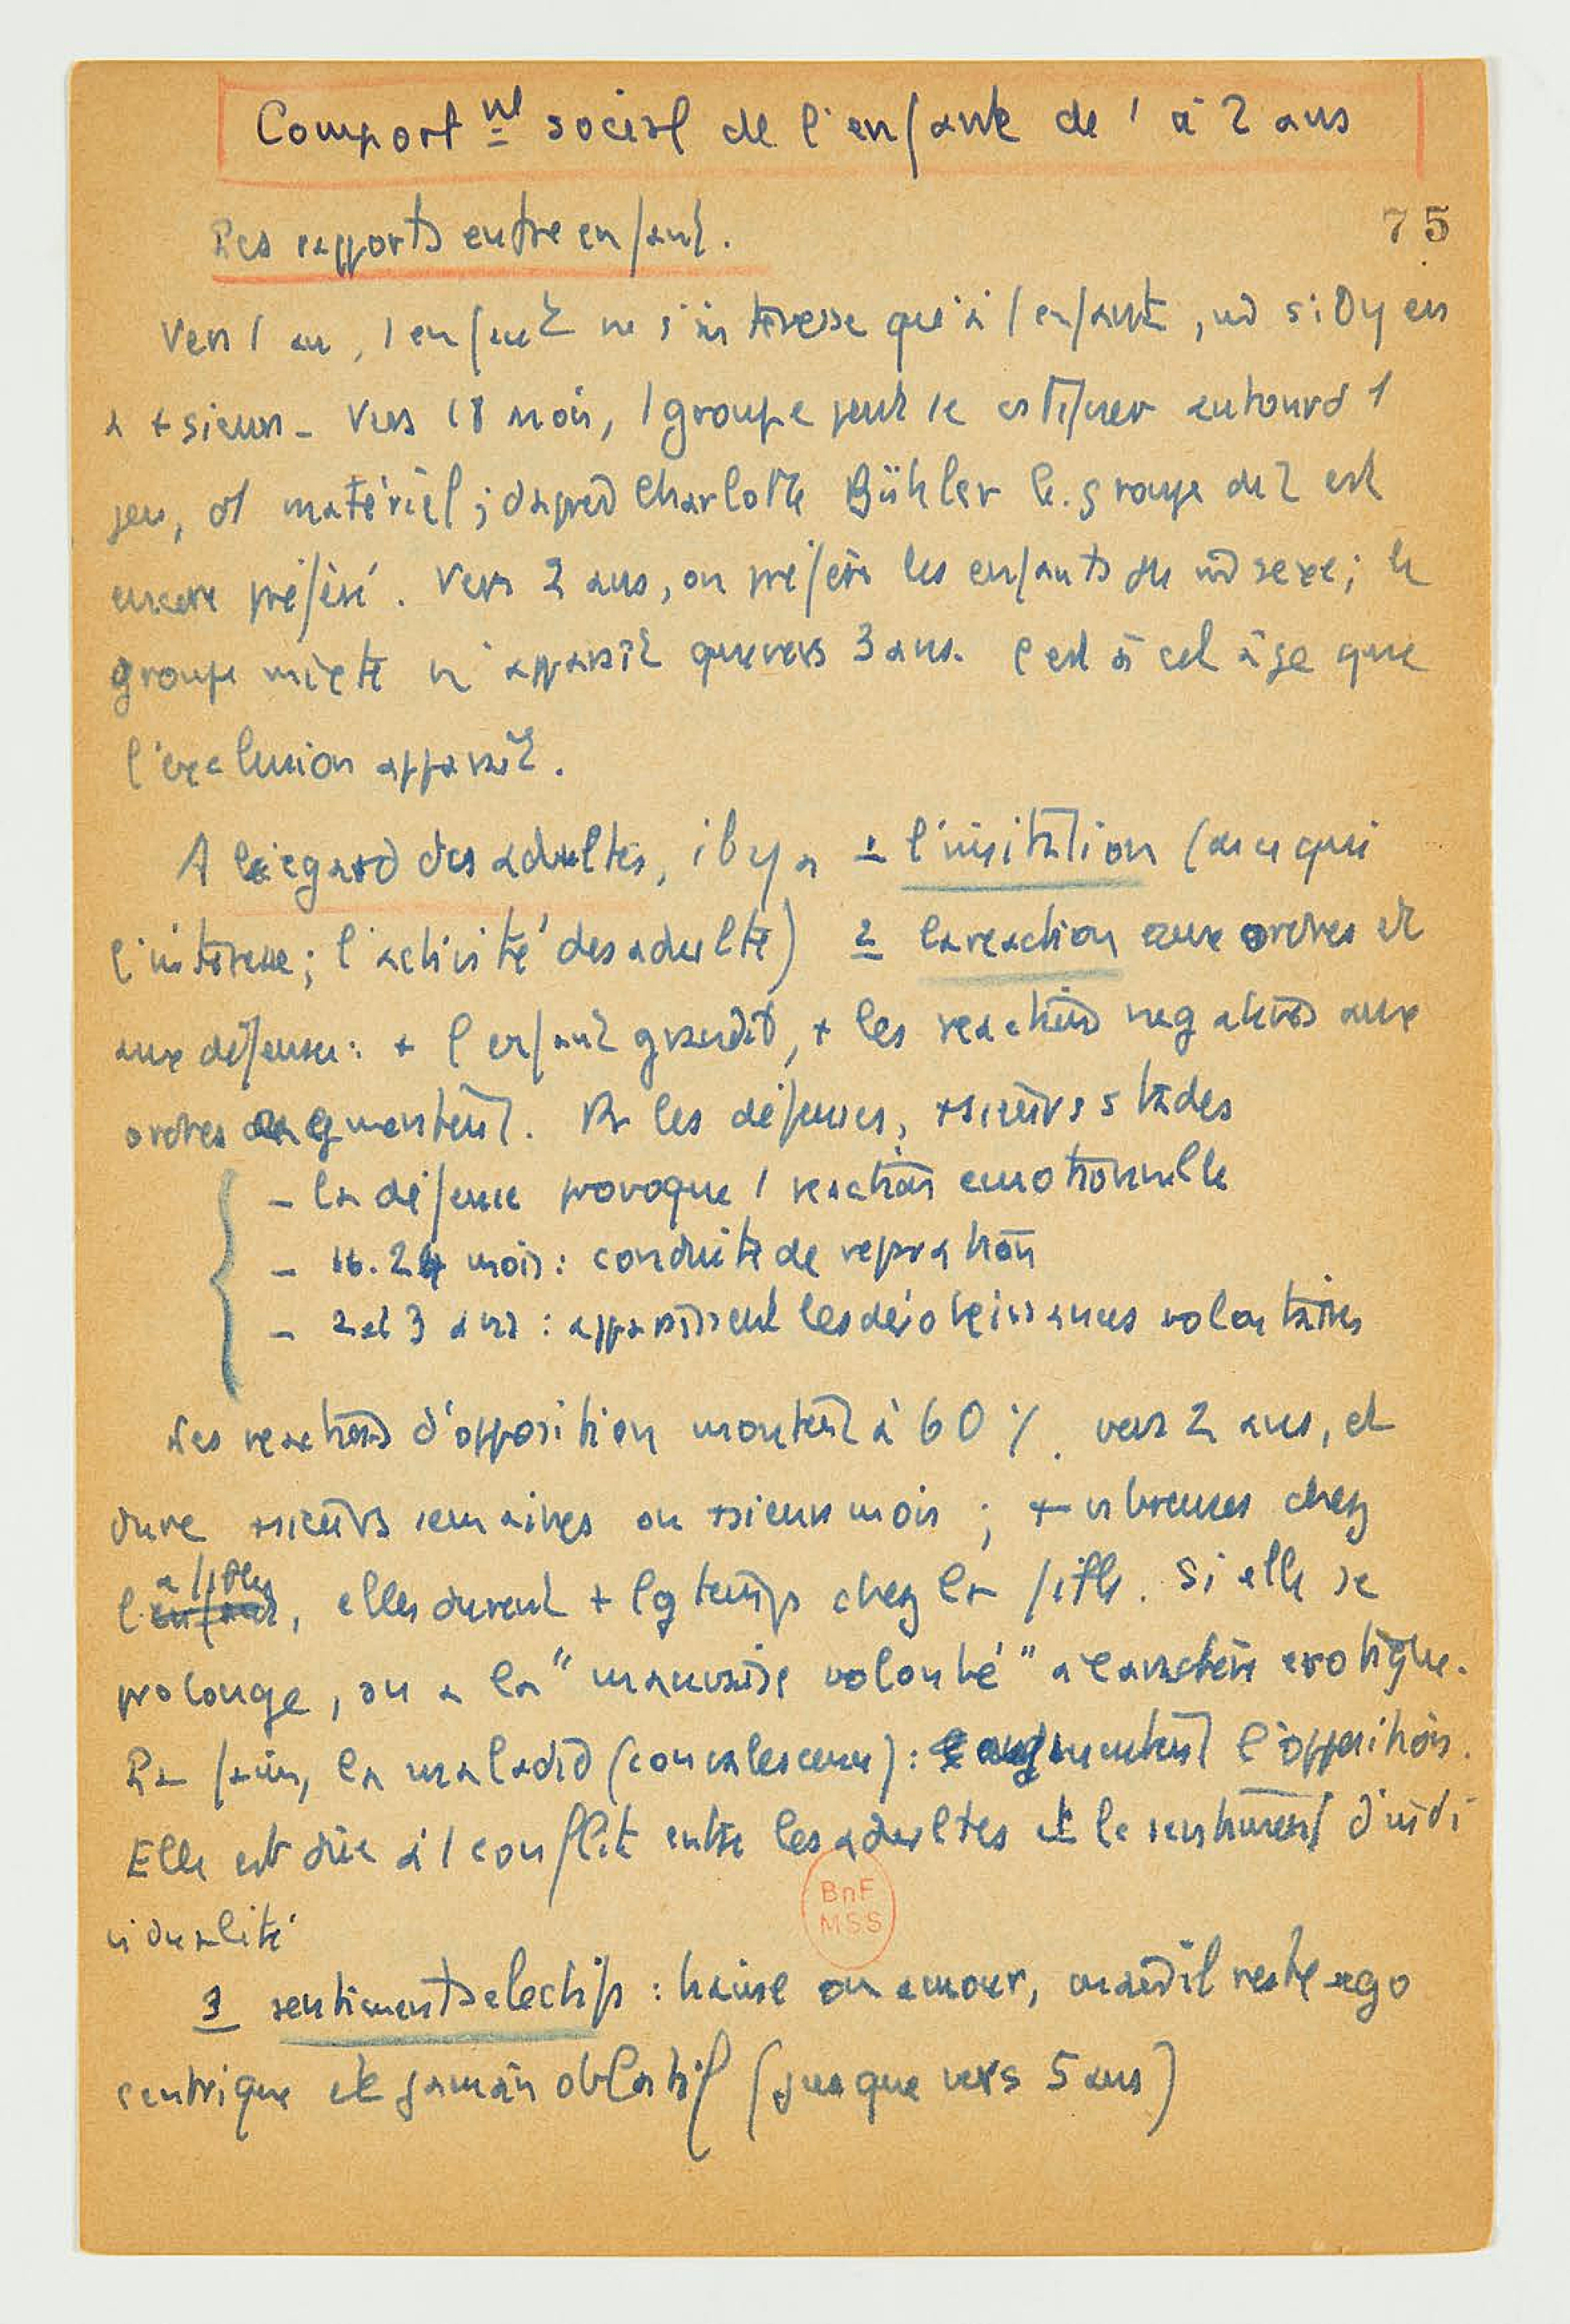 Comport nt social de l'enfant de 1 à 2 ans
75
Les rapports entre enfant.
Vers 1 an, 1 enfant ne s'intéresse qu'à 1 enfant, m̂ s'il y en
a +sieurs - Vers 18 mois, 1 groupe peut se autour d 1
jeu, d1 matériel ; d'après Charlotte Bühler le groupe de 2 est
encore préféré. Vers 2 ans, on préfère les enfants du m̂ sexe ; le
groupe mixte n'apparaît que vers 3 ans. C'est à cet âge que
l'exclusion apparaît.
A l'égard des adultes, il y a 1 l'imitation (de ce qui
l'intéresse ; l'activité des adulte) 2 la réaction aux ordres et
aux défenses : + l'enfant grandit, + les réactions négatives aux
ordres augmentent. Pr les défenses, +sieurs stades
- la défense provoque 1 réaction émotionnelle
- 16.24 mois : conduite de
- 2 et 3 ans : apparaissent les désobéissances volontaires
Les réactions d'opposition montent à 60 % vers 2 ans, et
dure +sieurs semaines ou +sieurs mois ; + nbreuses chez
, elles durent + lg temps chez la fille. Si elle se
prolonge, on a la "mauvaise volonté" à caractère érotique.
La faim, la maladie (convalescence) : augmentent l'opposition.
Elle est dûe à 1 conflit entre les adultes et le sentiment d'indi
vidualité
3 sentiments électifs : haine ou amour, mais il reste ego
centrique et jamais oblatif (jusque vers 5 ans)
BnF
MSS